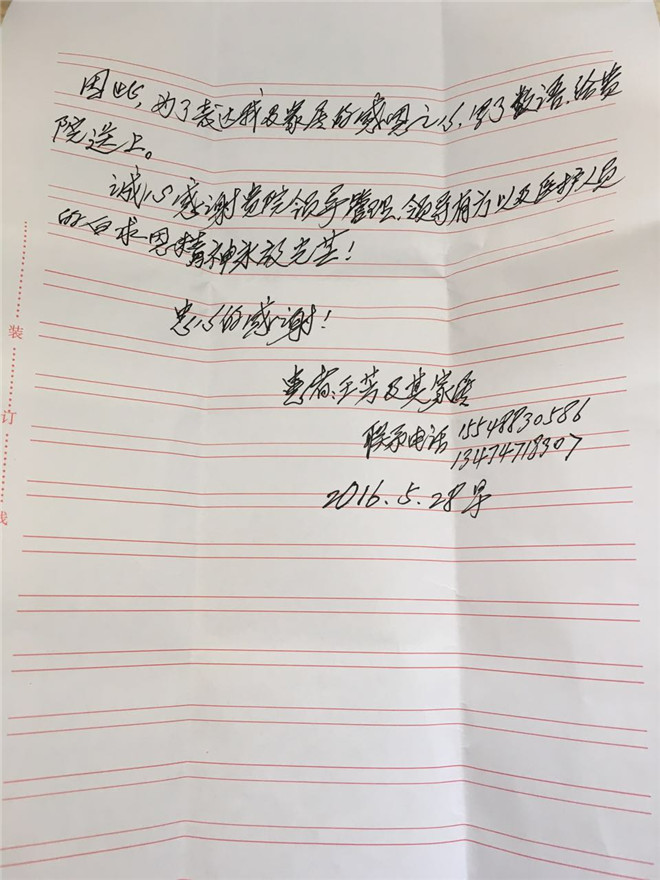 因此，为了表达我及家属的感恩之心，写了数语，给贵
院送上。
诚心感谢贵院领导管理，领导有方以及医护人员
的白求恩精神永放光芒！
忠心的感谢！
患者：王芳及其家属
联系电话 15548830586
13474718307
2016.5.28早
装
订
线